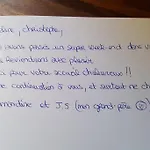 , christophe,
avons passé un super week-end dans v
reviendrons avec plaisir.
i pour votre accueil chaleureux !!
continuation à vous, et surtout ne ch
et J.S (mon grand-père